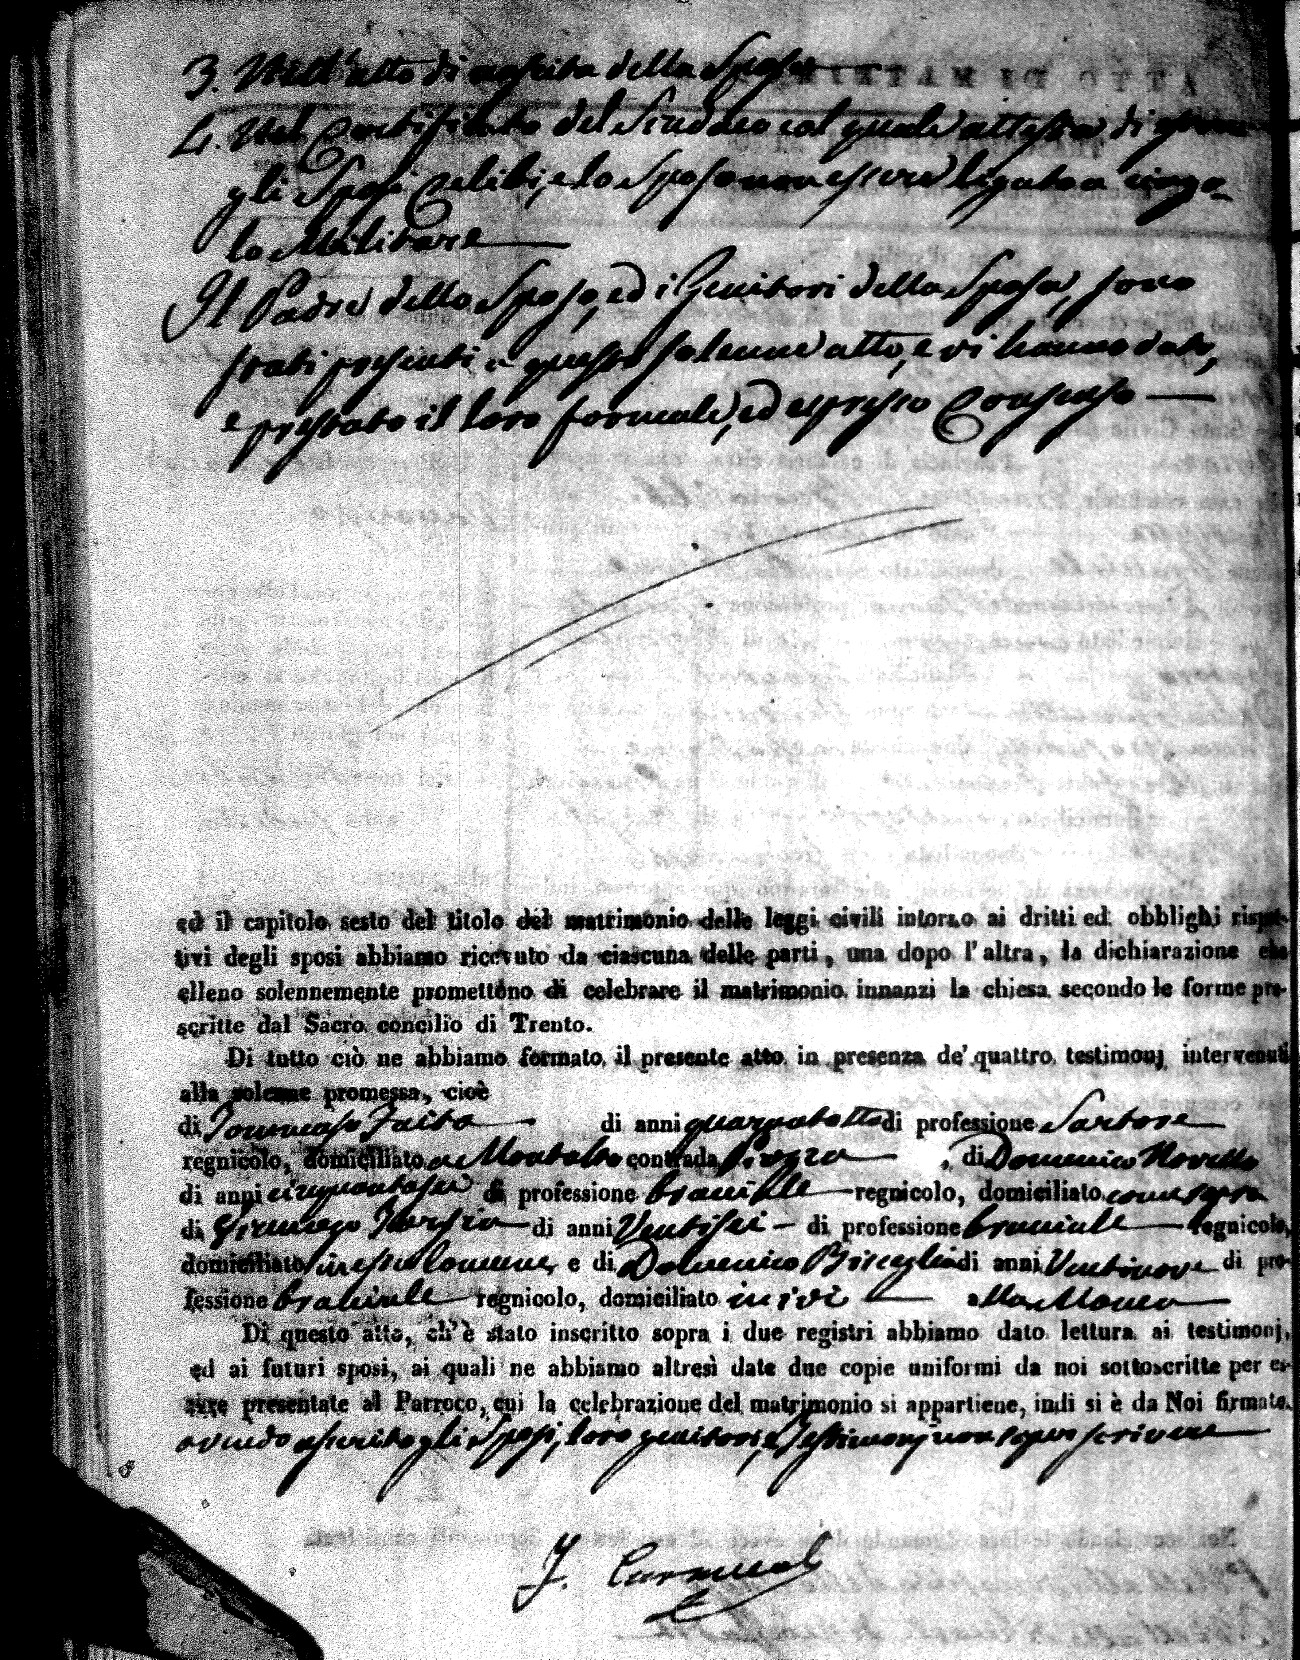 3. Nell'atto di nascita della Sposa
4. Nel Certificato del Sindaco col quale attesta di essere
gli Sposi Celibi, e lo Sposo non essere ligato a cingo-
lo Militare
Il Padre dello Sposo, ed i Genitori della Sposa, sono
stati presenti a questo solenne atto, e vi hanno dato,
e prestato il loro formale, ed espresso Consenso
ed il capitolo sesto del titolo del matrimonio delle leggi civili intorno ai dritti ed obblighi rispet-
tivi degli sposi abbiamo ricevuto da ciascuna delle parti, una dopo l'altra, la dichiarazione che
elleno solennemente promettono di celebrare il matrimonio innanzi la chiesa secondo le forme pre-
scritte dal Sacro concilio di Trento.
Di tutto ciò ne abbiamo formato il presente atto in presenza de' quattro testimonj intervenuti
alla solenne promessa, cioè
di Tommaso Faita di anni quarantotto di professione Sartore
regnicolo, domiciliato a Montalto contrada , di Domenico Novello
di anni cinquantasei di professione bracciale regnicolo, domiciliato come sopra
di di anni Ventisei di professione bracciale regnicolo,
domiciliato in esso Comune, e di Domenico Bisceglia di anni Ventinove di pro-
fessione bracciale regnicolo, domiciliato in ivi
Di questo atto, ch'è stato inscritto sopra i due registri abbiamo dato lettura ai testimonj,
ed ai futuri sposi, ai quali ne abbiamo altresì date due copie uniformi da noi sottoscritte per es-
sere presentate al Parroco, cui la celebrazione del matrimonio si appartiene, indi si è da Noi firmato.
avendo asserito gli Sposi, loro genitori, e Testimonj non saper scrivere